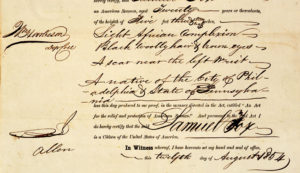 an American Seaman, aged Twenty years or thereabouts,
of the height of Five feet three inches
Light African Complexion
Black Woolly hair & brown eyes
A scar near the left Wrist
A native of the City of Phi-
ladelphia & State of Pennsylva-
nia
has this day produced to me proof, in the manner directed in the Act, entitled "An Act
for the relief and protection of American Seamen." And pursuant to the said Act I
do hereby certify that the said Samuel Fox
is a Citizen of the United States of America.
In Witness whereof, I have hereunto set my hand and seal of office,
this twelfth day of August 1854
Allen